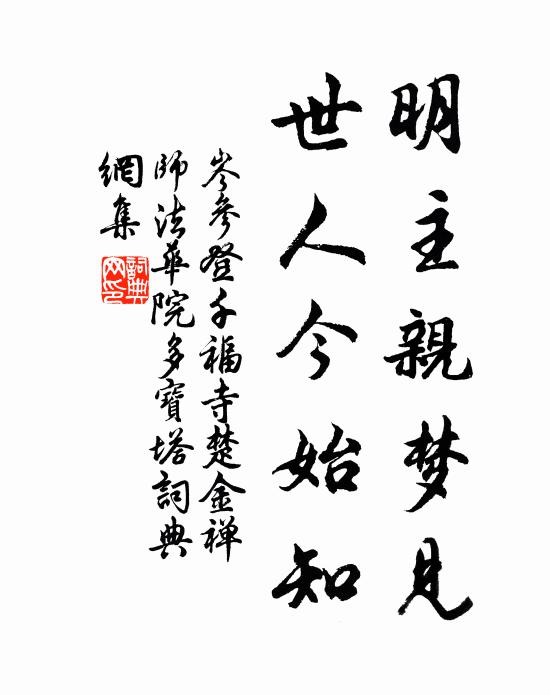 明主親梦見
世人今始知
岑參登千福寺楚金禅
師法華院多寶塔詞典
網集
詞典網印